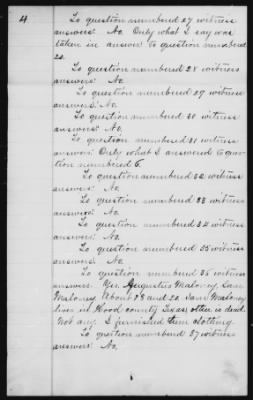 4
To question numbered 27 witness
answers: No. Only what I say was
taken in answer to question numbered
20.
To question numbered 28 witness
answers: No.
To question numbered 29 witness
answers: No.
To question numbered 30 witness
answers: No.
To question numbered 31 witness
answers: Only what I answered to ques
tion numbered 6.
To question numbered 32 witness
answers: No.
To question numbered 33 witness
answers: No.
To question numbered 34 witness
answers: No.
To question numbered 35 witness
answers: No.
To question numbered 36 witness
answers: Augustus Maloney, Sam
Maloney. About 18 and 20. Sam Maloney
lives in Hood county Texas, other is dead.
Not any. I furnished them clothing.
To question numbered 37 witness
answers: No.